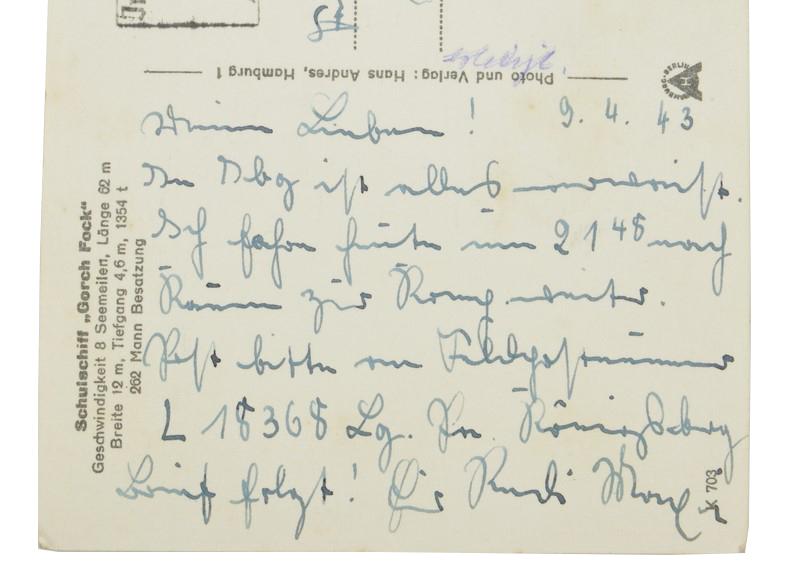 erledigt.
Photo und Verlag: Hans Andres, Hamburg 1
Meine Lieben! 9. 4. 43
In Dbg ist alles
Ich fahre heute um 21 48 nach
Kauen zur Komp. weiter.
Post bitte an Feldpostnummer
L 18368 Lg. Pa. Königsberg
Brief folgt! Rudi
Schulschiff „Gorch Fock“
Geschwindigkeit 8 Seemeilen, Länge 62 m
Breite 12 m, Tiefgang 4,6 m, 1354 t
262 Mann Besatzung
K 703